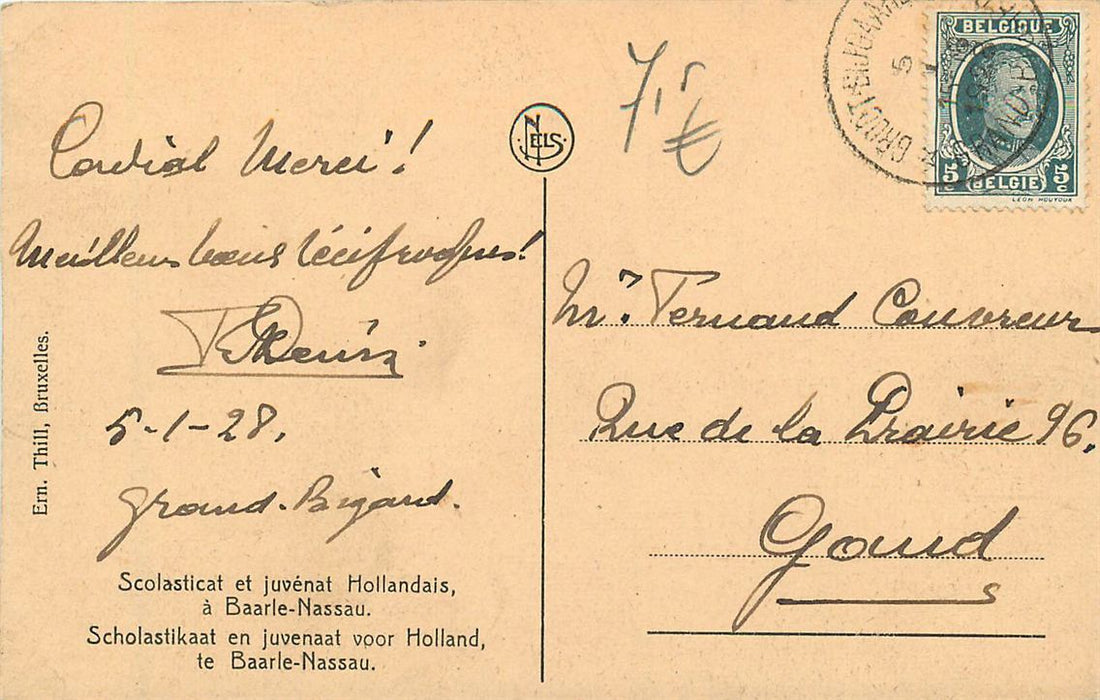 Cordial Merci!
Meilleurs voeux réciproques!
5-1-28.
Grand-Bigard.
Scolasticat et juvénat Hollandais,
à Baarle-Nassau.
Scholastikaat en juvenaat voor Holland,
te Baarle-Nassau.
Ern. Thill, Bruxelles.
NELS
7,5 €
GROOT-BIJGAARDEN
5
1
1928
GRAND-BIGARD
BELGIQUE
5c 5c
BELGIË
LÉON HOUYOUX
Mr. Fernand Couvreur
Rue de la Prairie 96.
Gand